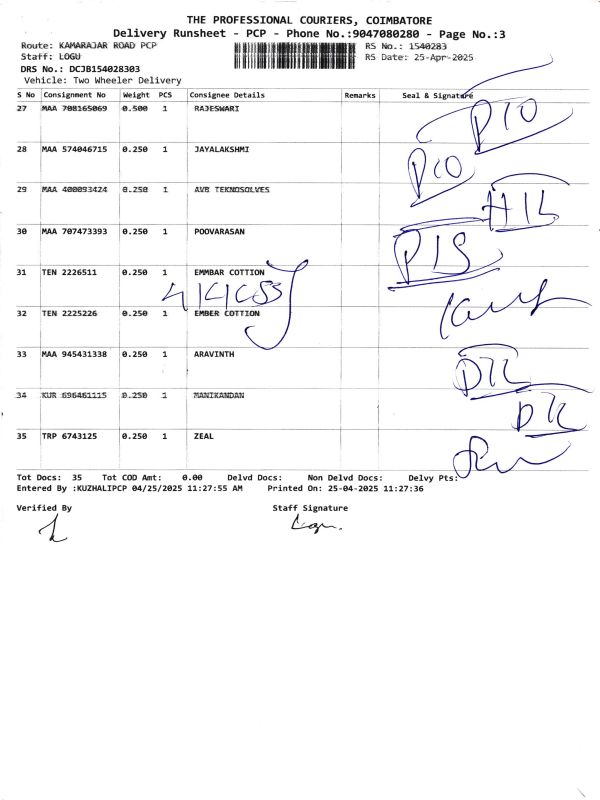 THE PROFESSIONAL COURIERS, COIMBATORE
Delivery Runsheet - PCP - Phone No.:9047080280 - Page No.:3
Route: KAMARAJAR ROAD PCP RS No.: 1540283
Staff: LOGU RS Date: 25-Apr-2025
DRS No.: DCJB154028303
Vehicle: Two Wheeler Delivery
S No Consignment No Weight PCS Consignee Details Remarks Seal & Signature
27 MAA 708165069 0.500 1 RAJESWARI
28 MAA 574046715 0.250 1 JAYALAKSHMI
29 MAA 400093424 0.250 1 AVB TEKNOSOLVES
30 MAA 707473393 0.250 1 POOVARASAN
31 TEN 2226511 0.250 1 EMMBAR COTTION
32 TEN 2225226 0.250 1 EMBER COTTION
33 MAA 945431338 0.250 1 ARAVINTH
34 KUR 696461115 0.250 1 MANIKANDAN
35 TRP 6743125 0.250 1 ZEAL
Tot Docs: 35 Tot COD Amt: 0.00 Delvd Docs: Non Delvd Docs: Delvy Pts:
Entered By :KUZHALIPCP 04/25/2025 11:27:55 AM Printed On: 25-04-2025 11:27:36
Verified By Staff Signature